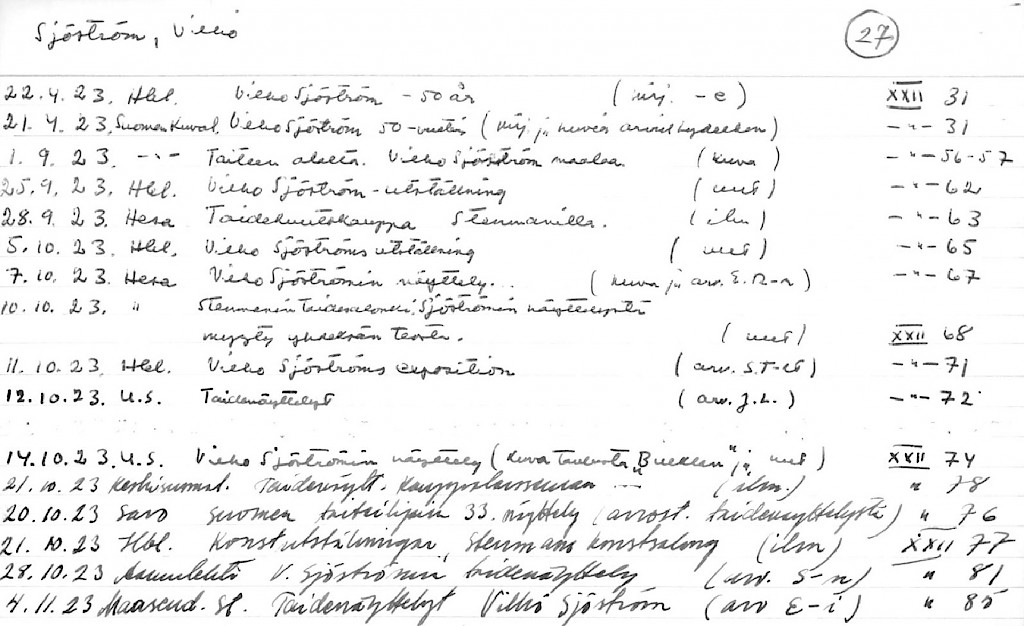 Sjöström, Vilho 27
22.4.23. Hbl. Vilho Sjöström - 50 år (kirj. -e) XXII 31
21.4.23. Suomen Kuval. Vilho Sjöström 50-vuotias (kirj. ja kuvia -"- 31
1.9.23. -"- Taiteen alalta. Vilho Sjöström maalaa. (kuva) -"- 56-57
25.9.23. Hbl. Vilho Sjöström-utställning (uut) -"- 62
28.9.23 Hesa Taidekauppa Stenmanilla. (ilm) -"- 63
5.10.23. Hbl. Vilho Sjöströms utställning (uut) -"- 65
7.10.23. Hesa Vilho Sjöströmin näyttely... (kuva ja arv. E.R-r) -"- 67
10.10.23. " Stenmanin taidesalonki, Sjöströmin näyttelystä
myyty yhdeksän teosta. (uut) XXII 68
11.10.23. Hbl. Vilho Sjöströms exposition (arv. S.T-st) -"- 71
12.10.23. U.S. Taidenäyttelyt (arv. J.L.) -"- 72
14.10.23. U.S. Vilho Sjöströmin näyttely (kuva taulusta ja uut) XXII 74
21.10.23 Keskisuomal. Taidenäyt. --- (ilm.) " 78
20.10.23 Savo Suomen taiteilijain 33. näyttely (arvost. taidenäyttelystä) " 76
21.10.23 Hbl. Konstutställningar, Stenmans konstsalong (ilm) XXII 77
28.10.23 Kauppalehti V. Sjöströmin taidenäyttely (arv. S-n) " 81
4.11.23 Maaseud. Taidenäyttelyt Vilho Sjöström (arv E-i) " 85